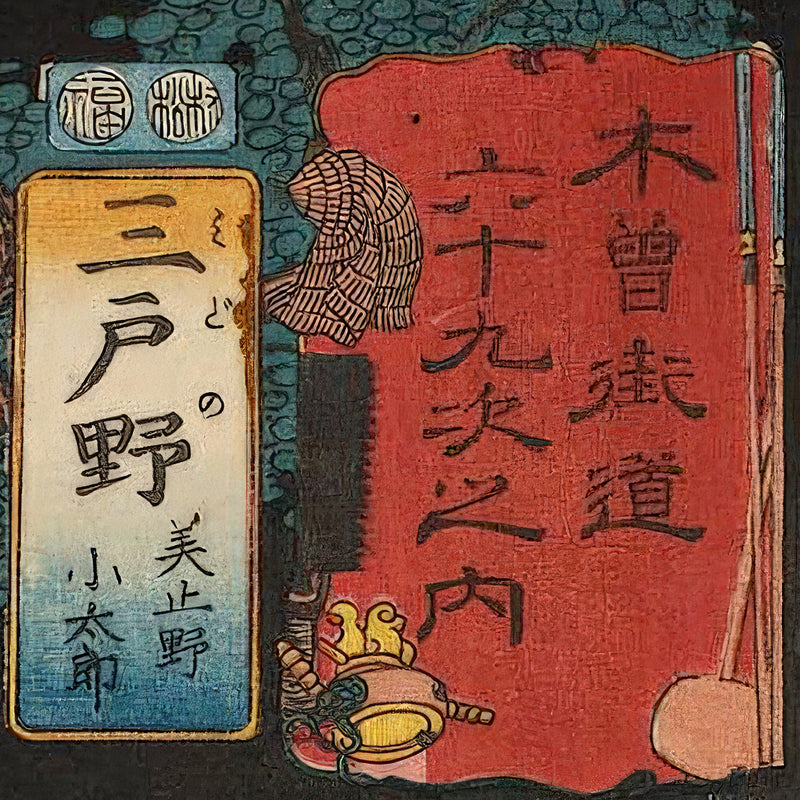 木曽街道
六十九次之内
三戸野
みどの
美止野
小太郎